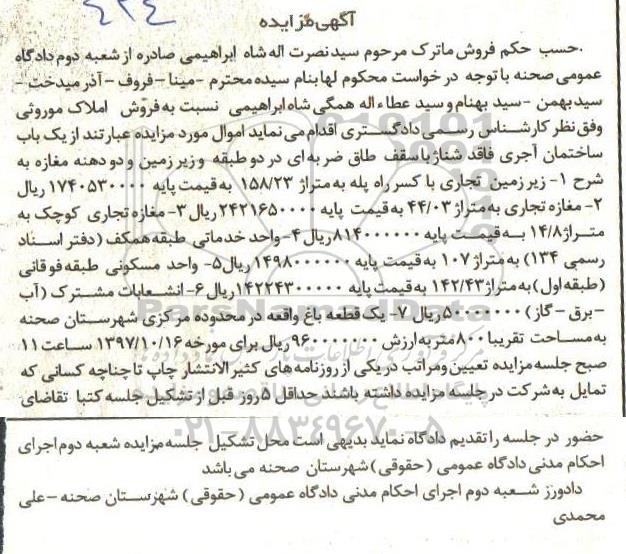 آگهی مزایده
۴۲۴
.حسب حکم فروش ماترک مرحوم سید نصرت اله شاه ابراهیمی صادره از شعبه دوم دادگاه
عمومی صحنه با توجه در خواست محکوم لها بنام سیده محترم -مینا -فروف -آذر میدخت -
سید بهمن -سید بهنام و سید عطاء اله همگی شاه ابراهیمی نسبت به فروش املاک موروثی
وفق نظر کارشناس رسمی دادگستری اقدام می نماید اموال مورد مزایده عبارتند از یک باب
ساختمان آجری فاقد شناژ با سقف طاق ضربه ای در دو طبقه و زیر زمین و دو دهنه مغازه به
شرح ۱- زیر زمین تجاری با کسر راه پله به متراژ ۱۵۸/۲۳ به قیمت پایه ۱۷۴۰۵۳۰۰۰۰ ریال
۲- مغازه تجاری به متراژ ۴۴/۰۳ به قیمت پایه ۲۴۲۱۶۵۰۰۰۰ ریال ۳- مغازه تجاری کوچک به
متراژ ۱۴/۸ به قیمت پایه ۸۱۴۰۰۰۰۰۰ ریال ۴- واحد خدماتی طبقه همکف (دفتر اسناد
رسمی ۱۳۴) به متراژ ۱۰۷ به قیمت پایه ۱۴۹۸۰۰۰۰۰۰ ریال ۵- واحد مسکونی طبقه فوقانی
(طبقه اول) به متراژ ۱۴۲/۴۳ به قیمت پایه ۱۴۲۲۴۳۰۰۰۰ ریال ۶- انشعابات مشترک (آب
-برق -گاز) ۵۰۰۰۰۰۰۰ ریال ۷- یک قطعه باغ واقعه در محدوده مرکزی شهرستان صحنه
به مساحت تقریبا ۸۰۰ متر به ارزش ۹۶۰۰۰۰۰۰۰ ریال برای مورخه ۱۳۹۷/۱۰/۱۶ ساعت ۱۱
صبح جلسه مزایده تعیین و مراتب در یکی از روزنامه های کثیر الانتشار چاپ تا چناچه کسانی که
تمایل به شرکت در جلسه مزایده داشته باشند حداقل ۵ روز قبل از تشکیل جلسه کتبا تقاضای
حضور در جلسه را تقدیم دادگاه نماید بدیهی است محل تشکیل جلسه مزایده شعبه دوم اجرای
احکام مدنی دادگاه عمومی (حقوقی) شهرستان صحنه می باشد
دادورز شعبه دوم اجرای احکام مدنی دادگاه عمومی (حقوقی) شهرستان صحنه -علی
محمدی
ParsNamadData
۰۲۱-۸۸۳۴۹۶۷۰-۵